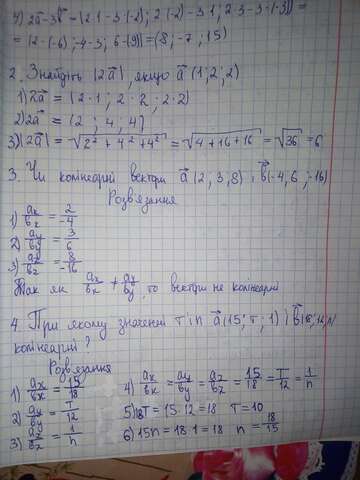 4) 2a⃗-3b⃗ = (2·1-3·(-2); 2·(-2)-3·1; 2·3-3·(-3)) =
= (2-(-6); -4-3; 6-(9)) = (8; -7; 15)
2. Знайдіть |2a⃗|, якщо a⃗ (1; 2; 2)
1) 2a⃗ = (2·1; 2·2; 2·2)
2) 2a⃗ = (2; 4; 4)
3) |2a⃗| = √2²+4²+4² = √4+16+16 = √36 = 6
3. Чи колінеарні вектори a⃗ (2, 3, 8) і b⃗ (-4, 6, -16)
Розв'язання
1) ax/bx = 2/-4
2) ay/by = 3/6
3) az/bz = 8/-16
Так як ax/bx ≠ ay/by, то вектори не колінеарні
4. При якому значенні т і n a⃗ (15; т; 1) і b⃗ (18; 12; n)
колінеарні?
Розв'язання
1) ax/bx = 15/18
2) ay/by = т/12
3) az/bz = 1/n
4) ax/bx = ay/by = az/bz = 15/18 = т/12 = 1/n
5) 18т = 15·12 = 18 т = 10
6) 15n = 18·1 = 18 n = 18/15